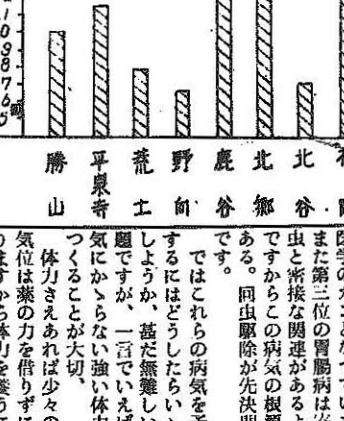 0
9
8
7
6
5
勝山
平泉寺
荒土
野向
鹿谷
北郷
北谷
また第三位の胃腸病は
虫と密接な関連があると
ですからこの病気の根
ある。回虫駆除が先決
です。
ではこれらの病気を予
するにはどうしたらいゝ
しようか、甚だ無難しい
題ですが、一言でいえば
気にかゝらない強い体力
つくることが大切、
体力さえあれば少々の
気位は薬の力を借りずに